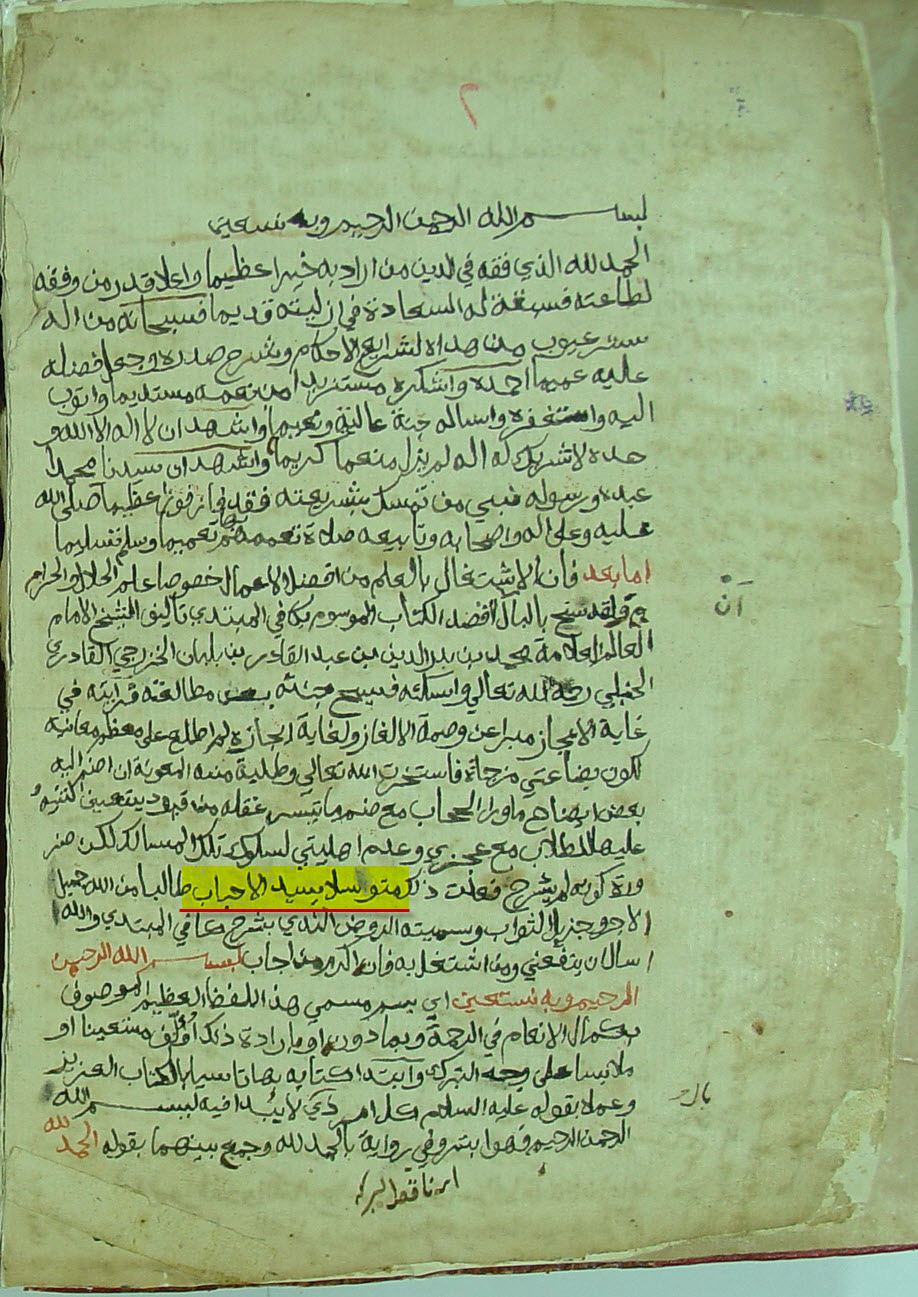 ٢
بسم الله الرحمن الرحيم وبه نستعين
الحمد لله الذي فقه في الدين من اراد به خيرا عظيما واعلا قدر من وفقه
لطاعته فسبقة له السعادة في ازليته قديما فسبحانه من اله
ستر عيوب من هداه لشرايع الاحكام وشرح صدره وجعل فضله
عليه عميما احمده واشكره مستزيدا من نعمه مستديما واتوب
اليه واستغفره واساله جنة عالية ونعيما واشهد ان لا اله الا الله و
حده لا شريك له اله لم يزل منعما كريما واشهد ان سيدنا محمدا
عبده ورسوله نبي من تمسك بشريعته فقد فاز فوزا عظيما صلى الله
عليه وعلى اله واصحابه وتابيعه صلاة تعممهم تعميما وسلم تسليما
اما بعد فان الاشتغال بالعلم من افضل الاعمال خصوصا علم الحلال والحرام
ولقد سنح بالبال الكتاب الموسوم بكافي المبتدي تاليف الشيخ الامام
العالم العلامة محمد بن بدر الدين بن عبد القادر بن بلبان الخزرجي القادري
الحنبلي رحمه الله تعالى واسكنه فسيح جنته بعض مطالعته فرايته في
غاية الاعجاز مبرا عن وصمة الالغاز ولغاية ايجازه لم اطلع على معظم معانيه
لكون بضاعتي مزجاة فاستخرت الله تعالى وطلبة منه المعونة ان اضم اليه
بعض ايضاح ما ورا الحجاب مع ضم ما تيسر عقله من قيود يتعين التنبيه
عليها للطلاب مع عجزي وعدم اهليتي لسلوك تلك المسالك لكن ضر
ورة كونه لم يشرح فعلت ذلك متوسلا بسيد الاحباب طالبا من الله جميل
الاجر وجزيل الثواب وسميته الروض الندي بشرح كافي المبتدي والله
اسال ان ينفعني ومن اشتغل به فانه اكرم من اجاب بسم الله الرحمن
الرحيم وبه نستعين اي بسم مسمي هذا اللفظ العظيم الموصوف
بكمال الانعام في الرحمة وبما دونه او بارادة ذلك اولف مستعينا او
ملابسا على وجه التبرك وابتدا كتابه بها تاسيا بالكتاب العزيز
وعملا بقوله عليه السلام كل امر ذي لا يبدا فيه ببسم الله
الرحمن الرحيم فهو ابتر وفي رواية بالحمد لله وجمع بينهما بقوله الحمد لله
اي ناقص البركه
ان
بال